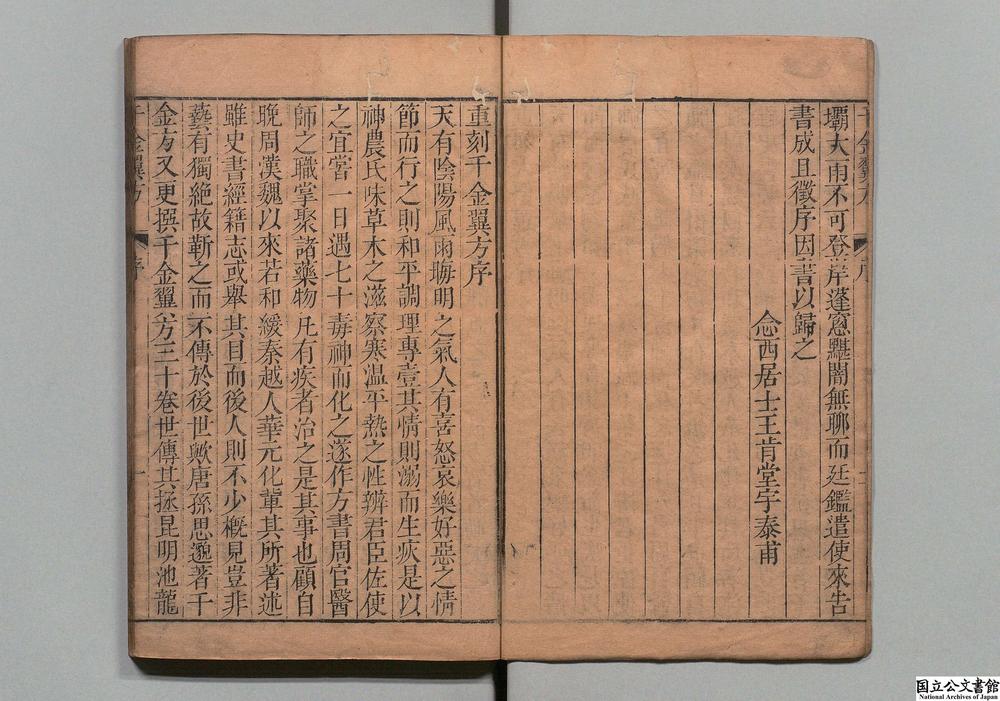 壩大雨不可登岸蓬窓黮闇無聊而廷鑑遣使來告
書成且徵序因書以歸之
念西居士王肯堂宇泰甫
重刻千金翼方序
天有陰陽風雨晦明之氣人有喜怒哀樂好惡之情
節而行之則和平調理專壹其情則溺而生疢是以
神農氏味草木之滋察寒温平熱之性辨君臣佐使
之宜嘗一日遇七十毒神而化之遂作方書周官醫
師之職掌聚諸藥物凡有疾者治之是其事也顧自
晚周漢魏以來若和緩秦越人華元化軰其所著述
雖史書經籍志或舉其目而後人則不少槪見豈非
藝有獨絶故靳之而不傳於後世歟唐孫思邈著千
金方又更撰千金翼方三十卷世傳其拯昆明池龍
千金翼方 序 一
国立公文書館
National Archives of Japan